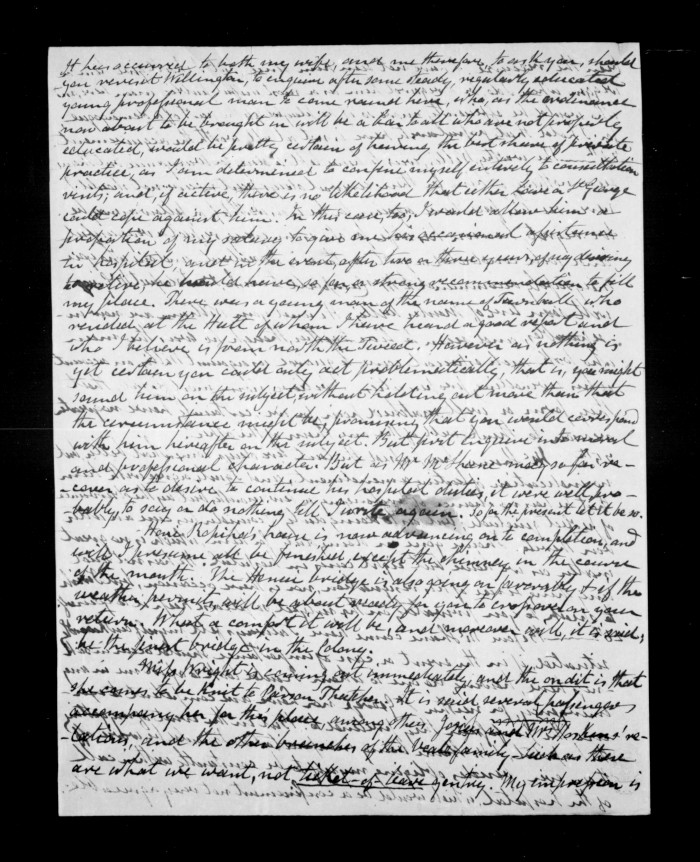 It has occurred to both my wife, and me therefore, to ask you, should
you revisit Wellington, to enquire after some steady, regularly educated
young professional man to come round here, who, as the ordinance
now about to be brought in will be a bar to all who are not properly
educated, would be pretty certain of having the best share of private
practice, as I am determined to confine myself entirely to consultation
visits; and, if active, there is no likelihood that either
could cope against him. In this case, too, I would allow him a
proportion of my salary to give me his occasional assistance
in hospital, and in the event, after two or three years, of my desiring
to retire he would have, so far, a strong recommendation to fill
my place. There was a young man of the name of who
resided at the Hutt of whom I have heard a good report and
who I believe is from north the Tweed. However as nothing is
yet certain you could only act problematically, that is, you might
sound him on the subject, without holding out more than that
the circumstance might be, promising that you would correspond
with him hereafter on the subject. But first enquire into moral
and professional character. But as Mr may so far re-
cover as to desire to continue his hospital duties, it were well pro-
bably, to say or do nothing till I write again. So for the present let it be so.
house is now advancing on to completion, and
will I presume all be finished, except the chimney, in the course
of the month. The bridge is also going on favorably & if the
weather permits, will be about ready for you to cross over on your
return. What a comfort it will be, and moreover will, it is said,
be the best bridge in the Colony.
Miss Wright is coming out immediately, and the on dit is that
she comes to be knit to Parson It is said several passengers
accompany her for this place, among others, Jonas and re-
lations, and the other branches of the family. Such as these
are what we want, not ticket-of-leave gentry. My impression is